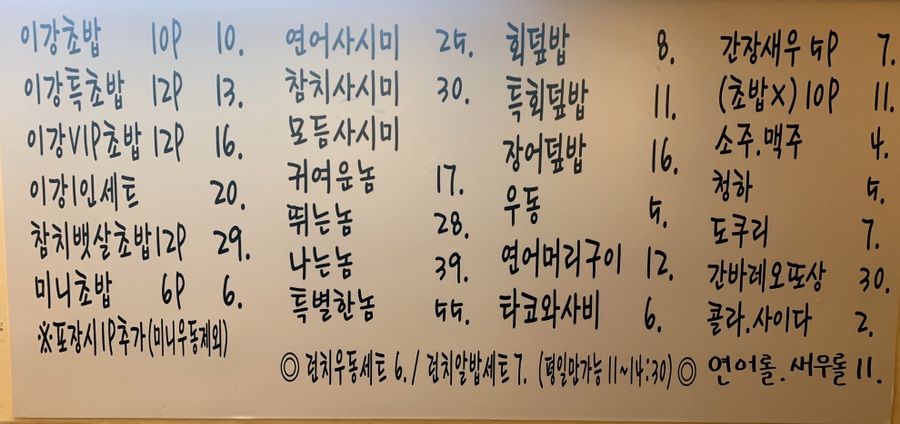 이강초밥 10P 10.
이강특초밥 12P 13.
이강VIP초밥 12P 16.
이강1인세트 20.
참치뱃살초밥 12P 29.
미니초밥 6P 6.
※포장시 1P추가 (미니우동제외)
연어사시미 25.
참치사시미 30.
모듬사시미
귀여운놈 17.
뛰는놈 28.
나는놈 39.
특별한놈 55.
회덮밥 8.
특회덮밥 11.
장어덮밥 16.
우동 5.
연어머리구이 12.
타코와사비 6.
간장새우 5P 7.
(초밥X) 10P 11.
소주.맥주 4.
청하 5.
도쿠리 7.
간바레오또상 30.
콜라.사이다 2.
연어롤.새우롤 11.
◎ 런치우동세트 6. / 런치알밥세트 7. (평일만가능 11~14:30) ◎